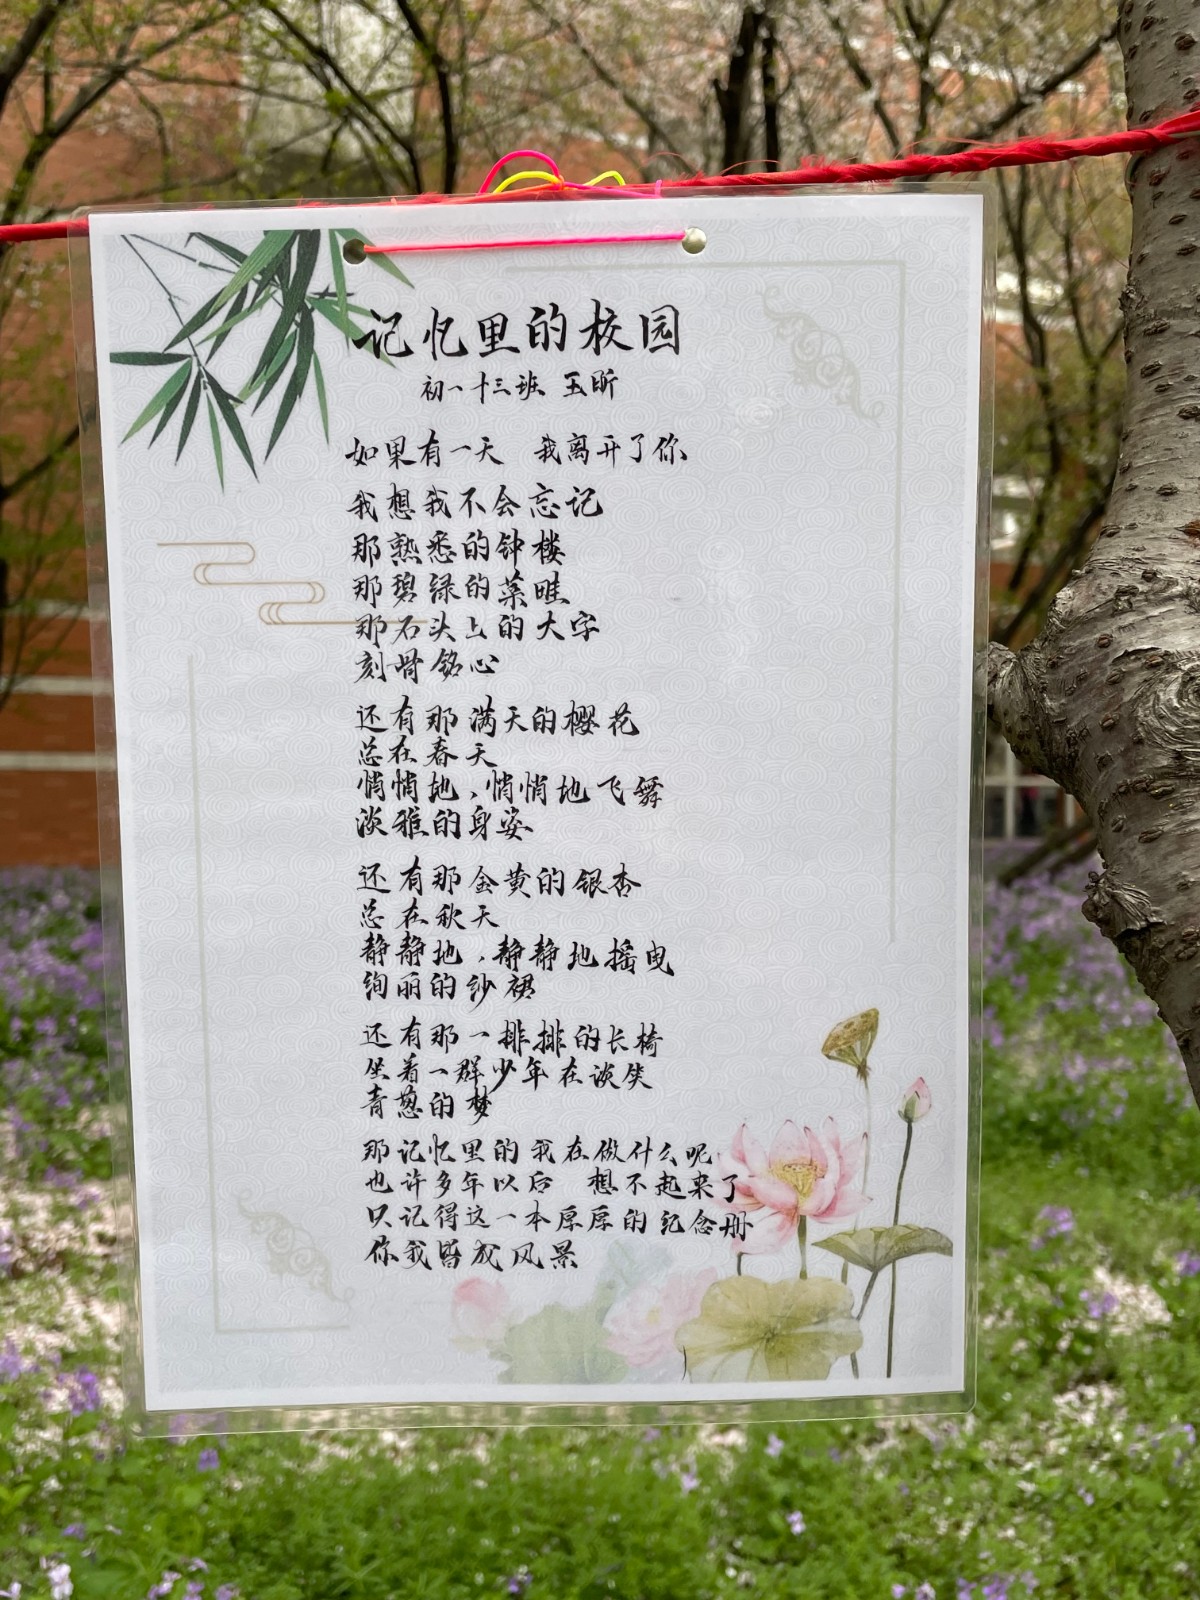 记忆里的校园
初一十三班 玉昕
如果有一天 我离开了你
我想我不会忘记
那熟悉的钟楼
那碧绿的菜畦
那石头上的大字
刻骨铭心
还有那满天的樱花
总在春天
悄悄地，悄悄地飞舞
淡雅的身姿
还有那金黄的银杏
总在秋天
静静地，静静地摇曳
绚丽的纱裙
还有那一排排的长椅
坐着一群少年在谈笑
青葱的梦
那记忆里的我在做什么呢
也许多年以后 想不起来了
只记得这一本厚厚的纪念册
你我皆成风景